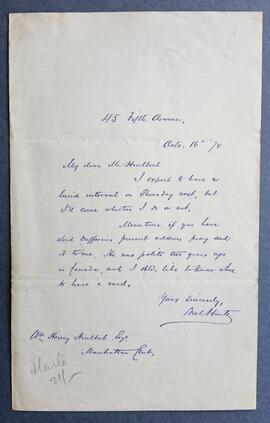 45 Fifth Avenue.
Octr. 16th '74
My dear Mr Hurlbert
I expect to have a
lucid interval on Thursday next, but
I'll come whether I do or not.
Meantime if you have
Lord Dufferins present address pray send
it to me. He was polite two years ago
in Canada, and I shd. like to know when
to leave a card.
Yours Sincerely,
Wm Henry Hurlbert Esq.
Manhattan Club.